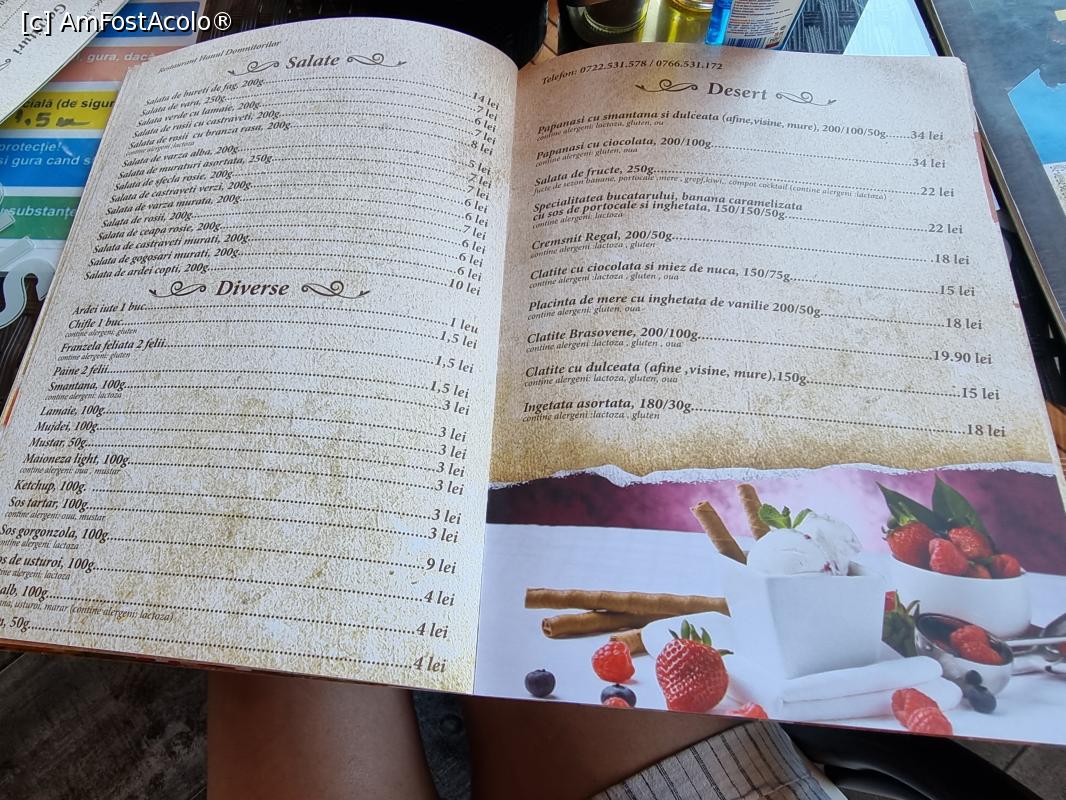 [c] AmFostAcolo®
Restaurant Hanul Domnitorilor
Salate
Salata de bureti de fag, 200g 14 lei
Salata de vara, 250g 6 lei
Salata verde cu lamaie, 200g 6 lei
Salata de rosii cu castraveti, 200g 7 lei
Salata de rosii cu branza rasa, 200g 8 lei
contine alergeni:lactoza
Salata de varza alba, 200g 5 lei
Salata de muraturi asortata, 250g 7 lei
Salata de sfecla rosie, 200g 7 lei
Salata de castraveti verzi, 200g 6 lei
Salata de varza murata, 200g 6 lei
Salata de rosii, 200g 7 lei
Salata de ceapa rosie, 200g 6 lei
Salata de castraveti murati, 200g 6 lei
Salata de gogosari murati, 200g 6 lei
Salata de ardei copti, 200g 10 lei
Diverse
Ardei iute 1 buc 1 leu
Chifle 1 buc 1,5 lei
contine alergeni: gluten
Franzela feliata 2 felii 1,5 lei
contine alergeni: gluten
Paine 2 felii 1,5 lei
Smantana, 100g 3 lei
contine alergeni: lactoza
Lamaie, 100g 3 lei
Mujdei, 100g 3 lei
Mustar, 50g 3 lei
Maioneza light, 100g 3 lei
contine alergeni: oua , mustar
Ketchup, 100g 3 lei
Sos tartar, 100g 3 lei
contine alergeni: oua, mustar
Sos gorgonzola, 100g 9 lei
contine alergeni: lactoza
de usturoi, 100g 4 lei
alergeni: lactoza
alb, 100g 4 lei
usturoi, marar (contine alergeni: lactoza)
50g 4 lei
Telefon: 0722.531.578 / 0766.531.172
Desert
Papanasi cu smantana si dulceata (afine,visine, mure), 200/100/50g 34 lei
contine alergeni: lactoza, gluten, ou
Papanasi cu ciocolata, 200/100g 34 lei
contine alergeni: gluten, oua
Salata de fructe, 250g 22 lei
fucte de sezon banane, portocale ,mere , grepf,kiwi,. compot cocktail (contine alergeni :lactoza)
Specialitatea bucatarului, banana caramelizata
cu sos de portocale si inghetata, 150/150/50g 22 lei
contine alergeni: lactoza
Cremsnit Regal, 200/50g 18 lei
contine alergeni :lactoza , gluten
Clatite cu ciocolata si miez de nuca, 150/75g 15 lei
contine alergeni :lactoza , gluten , oua
Placinta de mere cu inghetata de vanilie 200/50g 18 lei
contine alergeni: gluten, oua
Clatite Brasovene, 200/100g 19.90 lei
contine alergeni :lactoza , gluten , oua
Clatite cu dulceata (afine ,visine, mure),150g 15 lei
contine alergeni: lactoza, gluten, oua
Ingetata asortata, 180/30g 18 lei
contine alergeni :lactoza , gluten